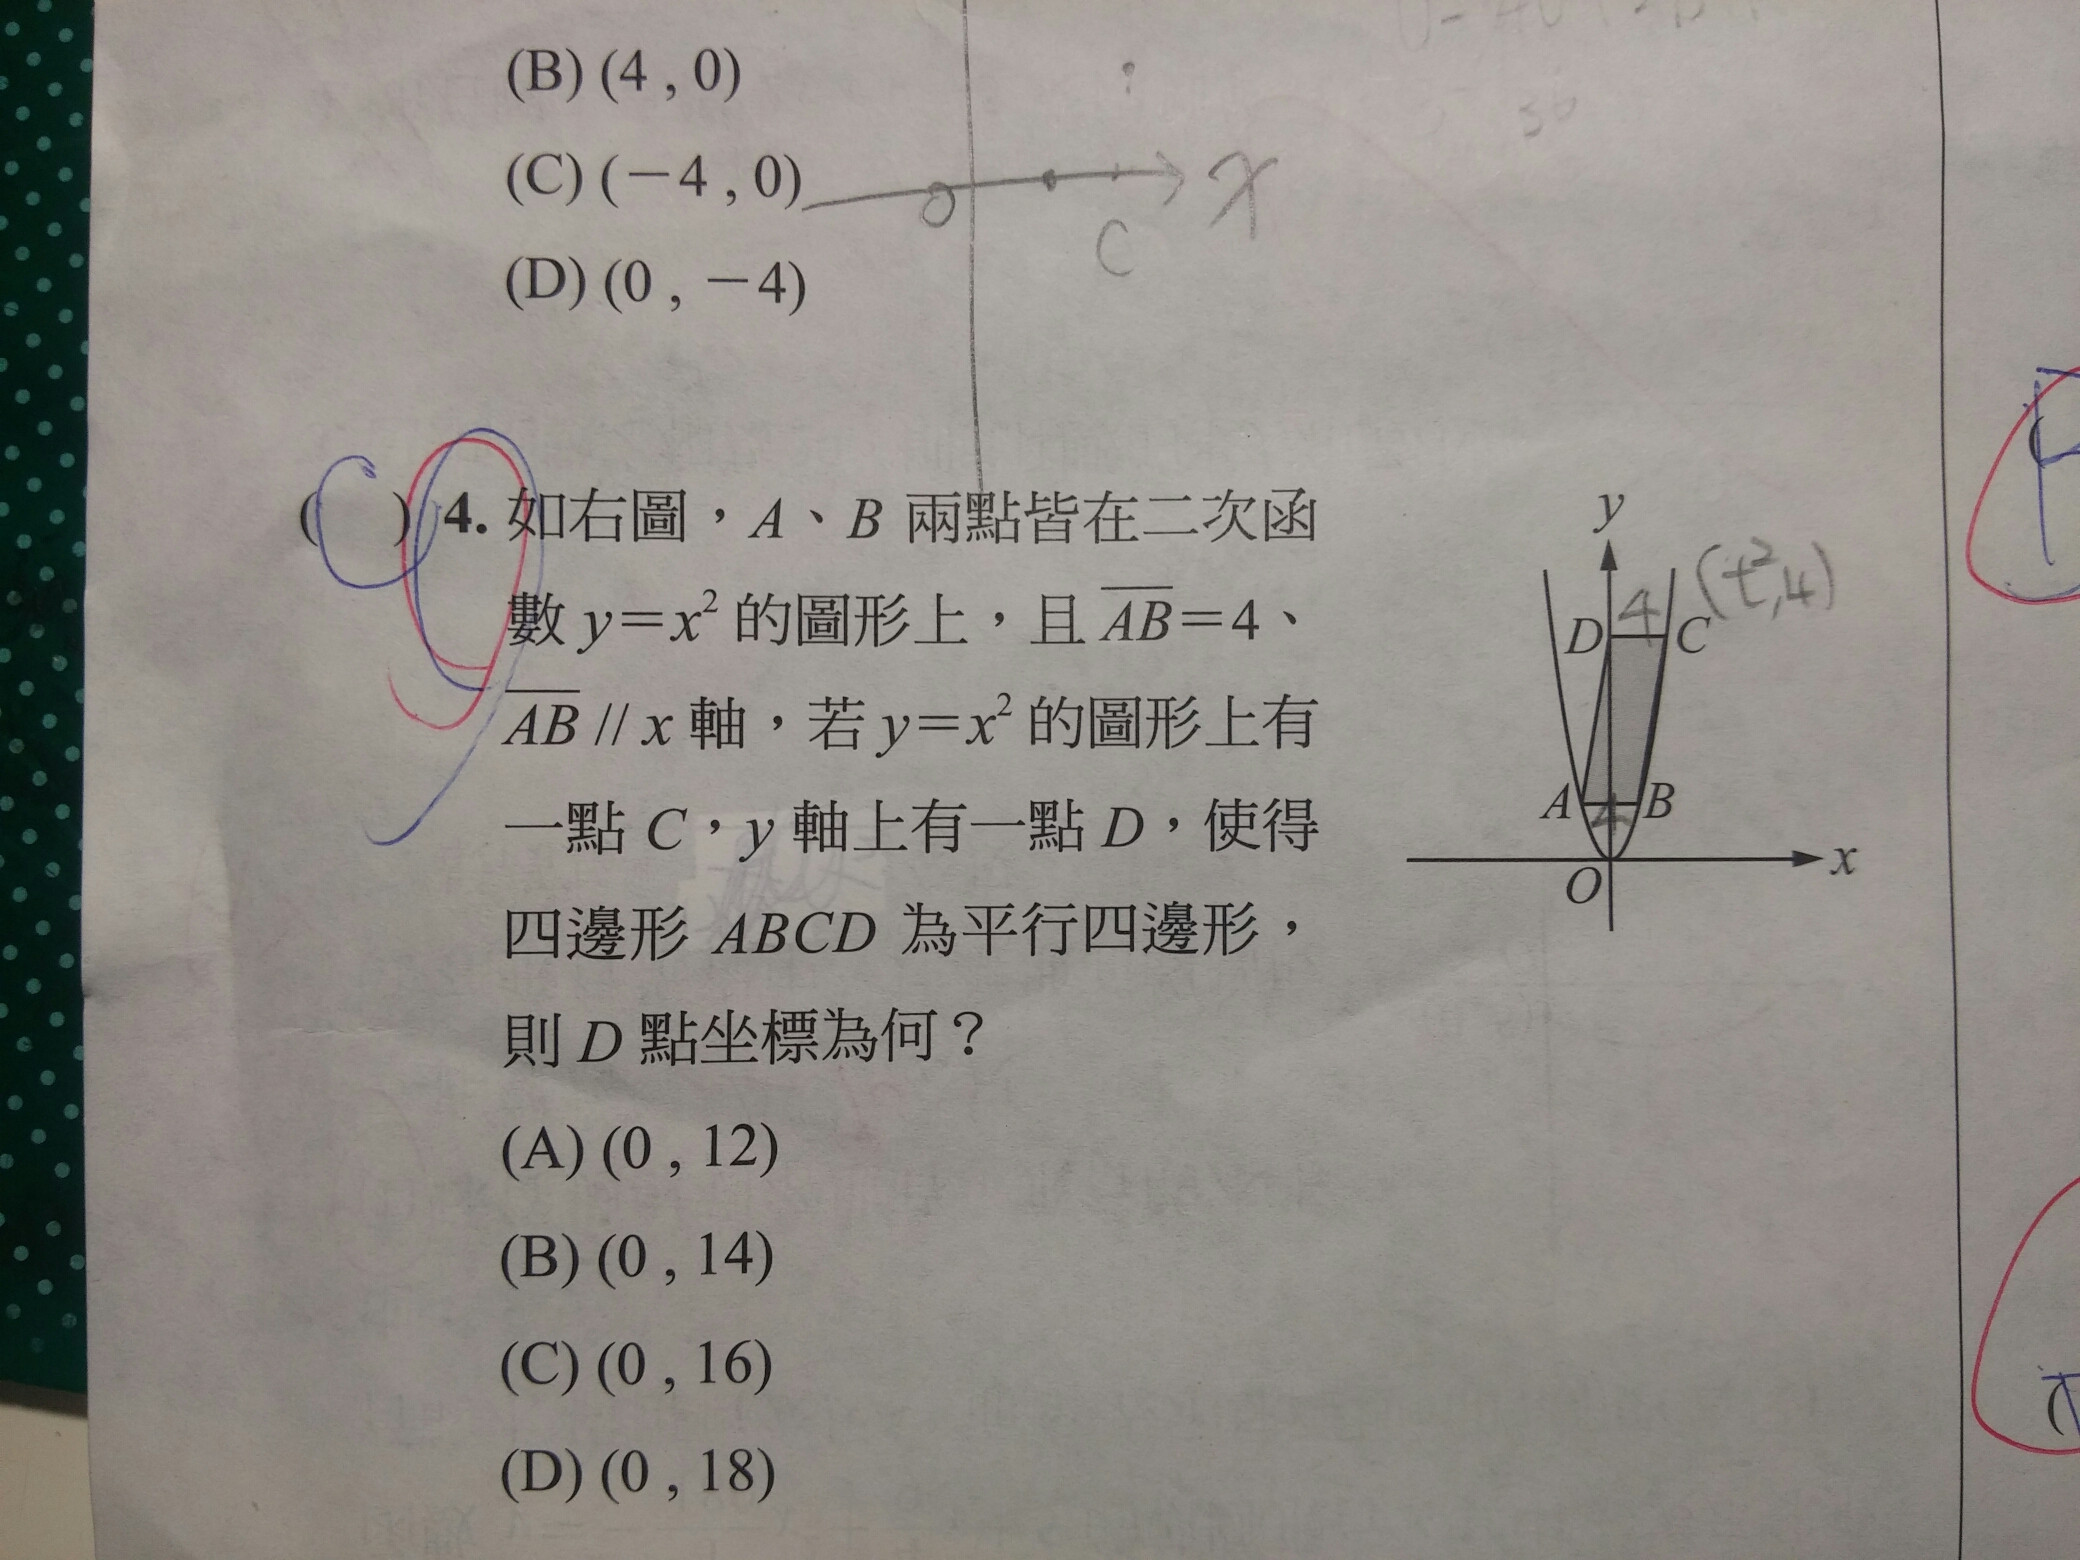 (B) (4 , 0)
(C) (－4 , 0)
O
X
C
(D) (0 , －4)
( C ) 4. 如右圖，A、B 兩點皆在二次函
數 y＝x² 的圖形上，且 AB＝4、
AB // x 軸，若 y＝x² 的圖形上有
一點 C，y 軸上有一點 D，使得
四邊形 ABCD 為平行四邊形，
則 D 點坐標為何？
(A) (0 , 12)
(B) (0 , 14)
(C) (0 , 16)
(D) (0 , 18)
y
4 (t²,4)
D C
A 4 B
x
O